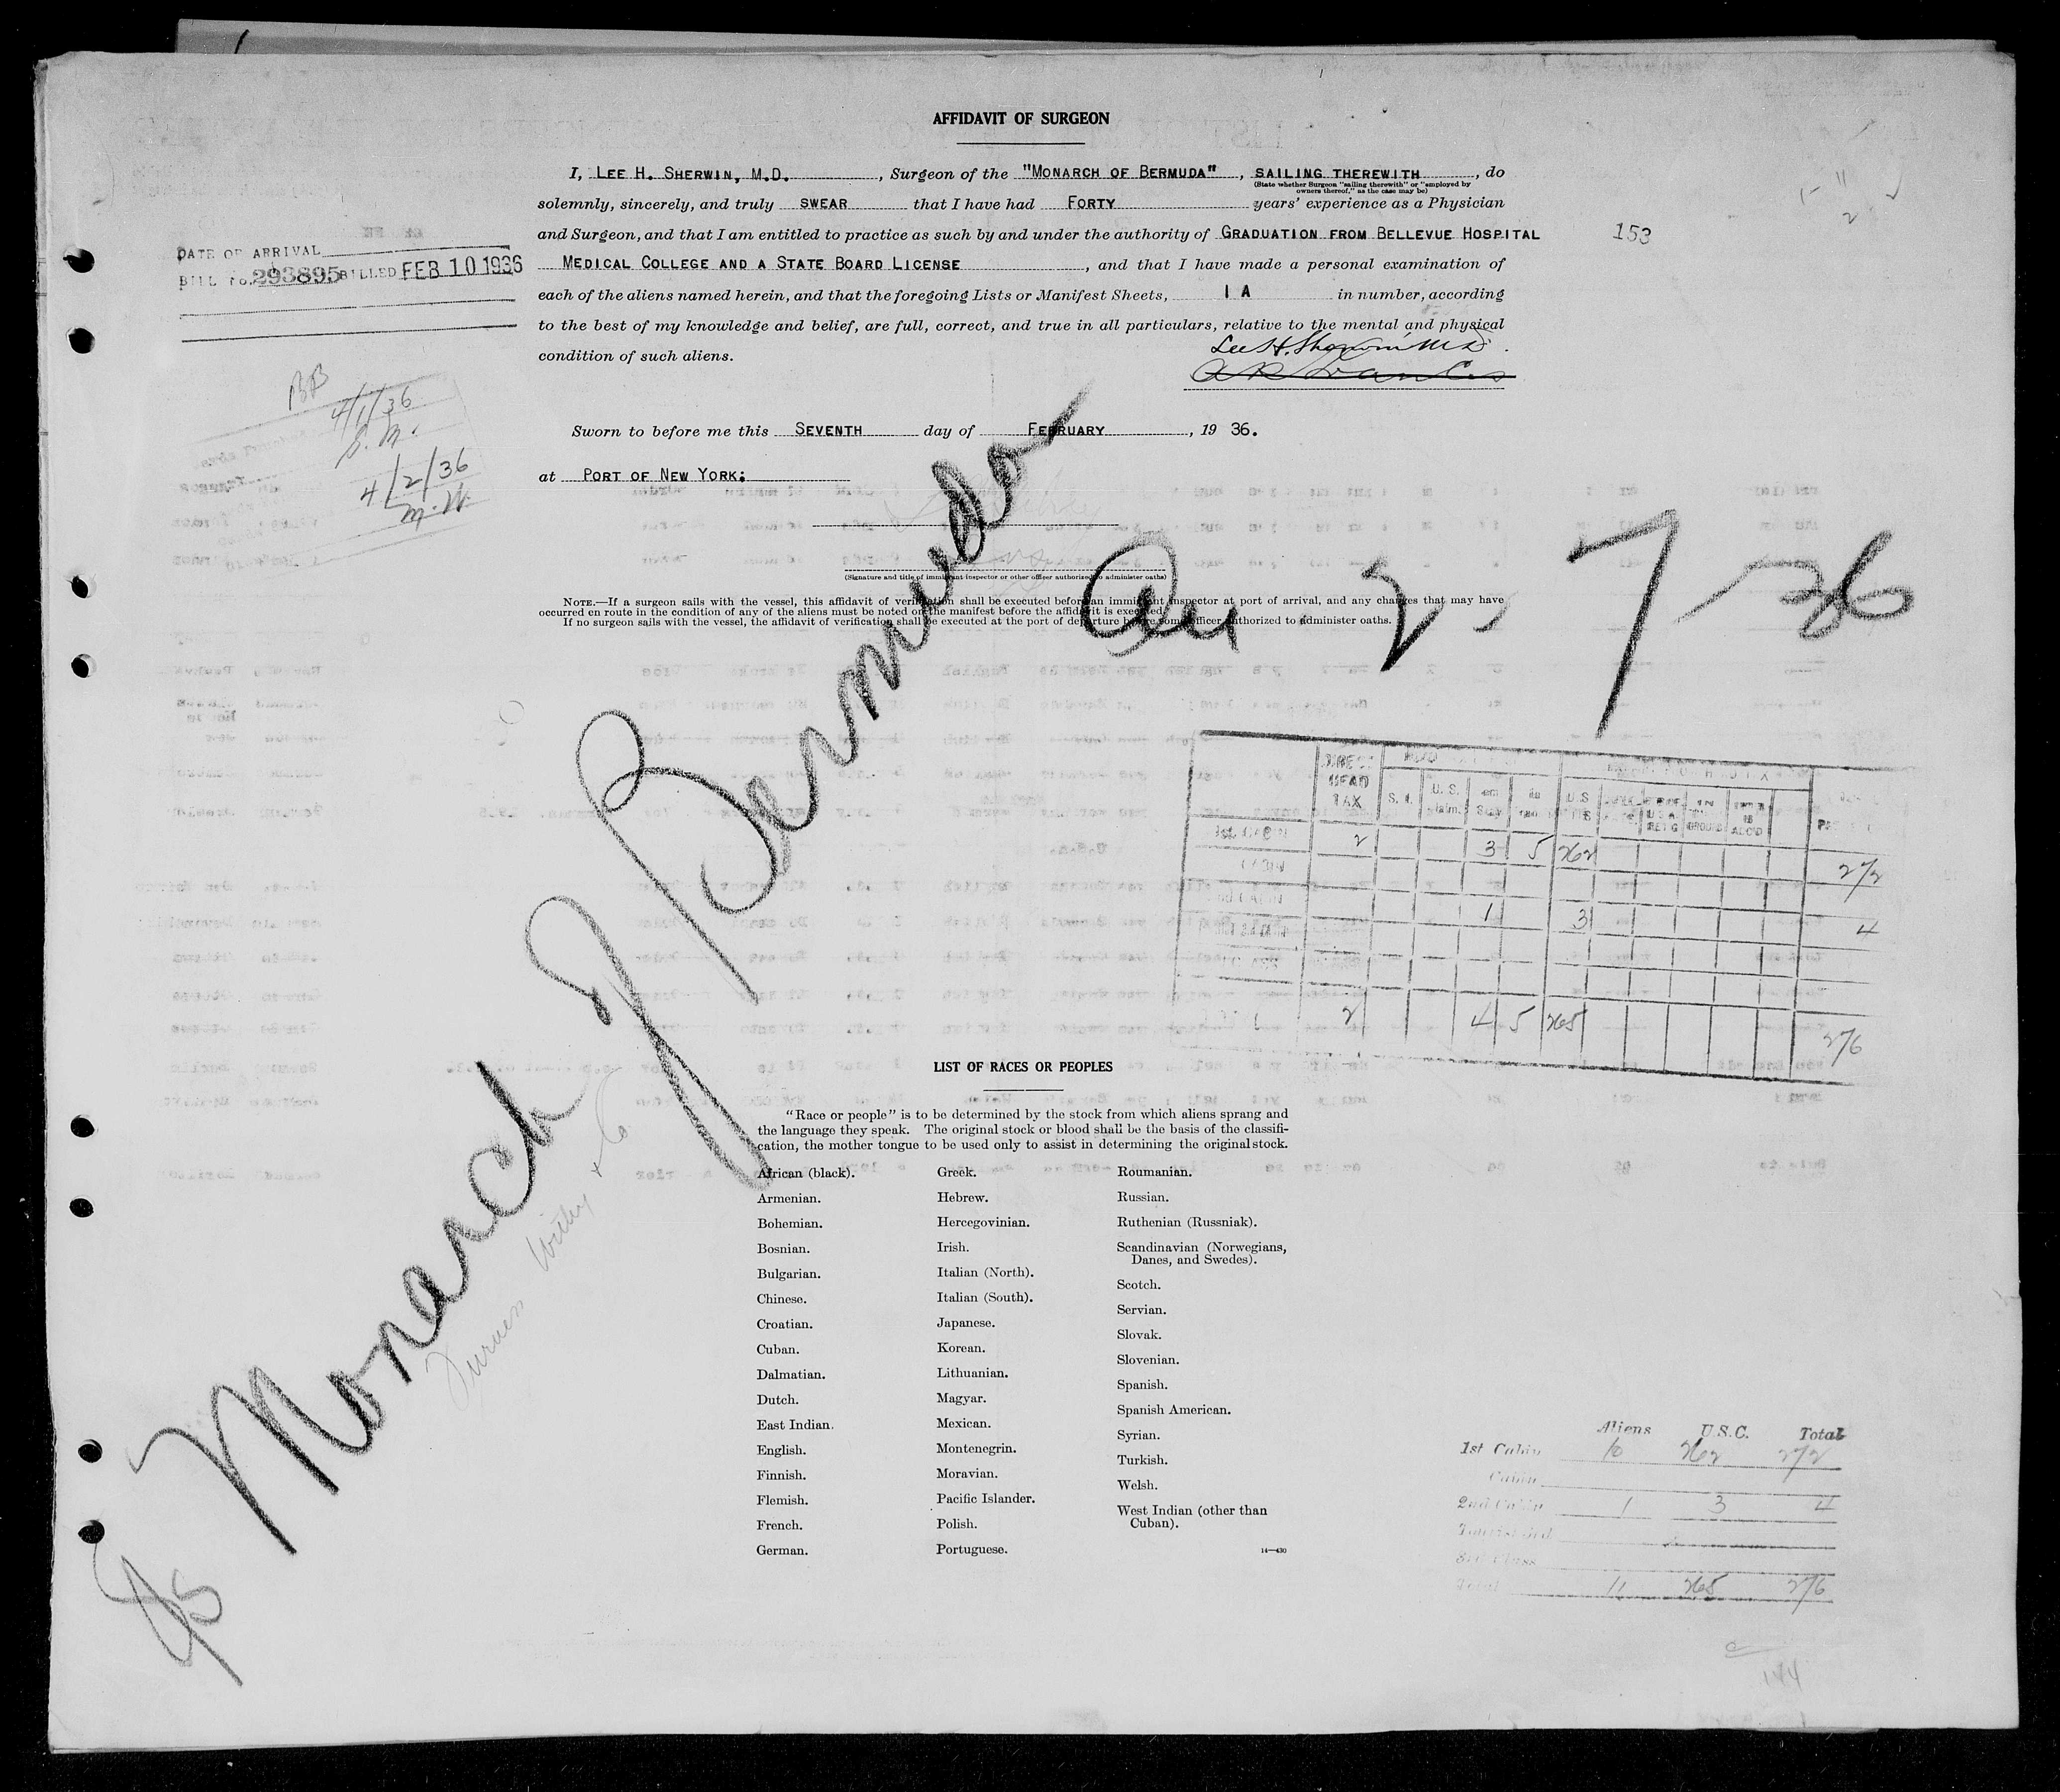 AFFIDAVIT OF SURGEON
I, LEE H. SHERWIN, M.D. , Surgeon of the "MONARCH OF BERMUDA" , SAILING THEREWITH , do
(State whether Surgeon "sailing therewith" or "employed by
owners thereof," as the case may be)
solemnly, sincerely, and truly SWEAR that I have had FORTY years' experience as a Physician
and Surgeon, and that I am entitled to practice as such by and under the authority of GRADUATION FROM BELLEVUE HOSPITAL
153
MEDICAL COLLEGE AND A STATE BOARD LICENSE , and that I have made a personal examination of
each of the aliens named herein, and that the foregoing Lists or Manifest Sheets, 1 A in number, according
to the best of my knowledge and belief, are full, correct, and true in all particulars, relative to the mental and physical
condition of such aliens.
Lee H. Sherwin M.D.
DATE OF ARRIVAL
BILL No. 293895 BILLED FEB 10 1936
BB
4/1/36
S. M.
4/2/36
M. W.
Sworn to before me this SEVENTH day of FEBRUARY , 19 36.
at PORT OF NEW YORK:
(Signature and title of immigrant inspector or other officer authorized to administer oaths)
NOTE.—If a surgeon sails with the vessel, this affidavit of verification shall be executed before an immigrant inspector at port of arrival, and any changes that may have
occurred en route in the condition of any of the aliens must be noted on the manifest before the affidavit is executed.
If no surgeon sails with the vessel, the affidavit of verification shall be executed at the port of departure before some officer authorized to administer oaths.
SS Monarch of Bermuda
Arr 2, 7-36
Furness Withy + Co
DIRECT HEAD TAX S. I. U.S. claim. U.S.
1st CABIN 2 3 5 262 272
CABIN
2nd CABIN 1 3 4
2 4 5 265 276
LIST OF RACES OR PEOPLES
"Race or people" is to be determined by the stock from which aliens sprang and
the language they speak. The original stock or blood shall be the basis of the classifi-
cation, the mother tongue to be used only to assist in determining the original stock.
African (black).
Armenian.
Bohemian.
Bosnian.
Bulgarian.
Chinese.
Croatian.
Cuban.
Dalmatian.
Dutch.
East Indian.
English.
Finnish.
Flemish.
French.
German.
Greek.
Hebrew.
Hercegovinian.
Irish.
Italian (North).
Italian (South).
Japanese.
Korean.
Lithuanian.
Magyar.
Mexican.
Montenegrin.
Moravian.
Pacific Islander.
Polish.
Portuguese.
Roumanian.
Russian.
Ruthenian (Russniak).
Scandinavian (Norwegians,
Danes, and Swedes).
Scotch.
Servian.
Slovak.
Slovenian.
Spanish.
Spanish American.
Syrian.
Turkish.
Welsh.
West Indian (other than
Cuban).
14—430
Aliens U.S.C. Total
1st Cabin 10 262 272
Cabin
2nd Cabin 1 3 4
3rd Class
Total 11 265 276
144